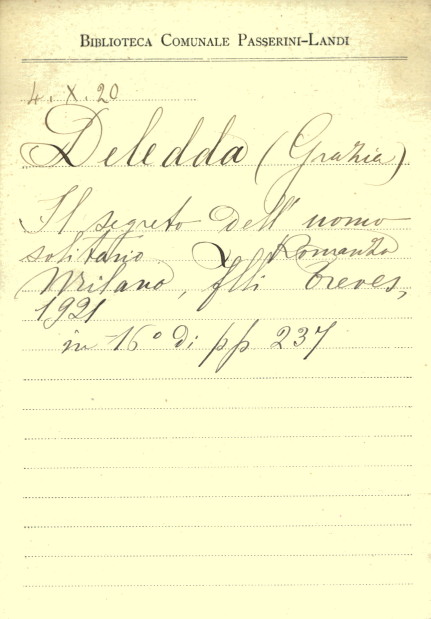 BIBLIOTECA COMUNALE PASSERINI-LANDI
4. X. 20
Deledda (Grazia)
Il segreto dell'uomo
solitario. Romanzo
Milano, flli Treves,
1921
in 16° di pp 237